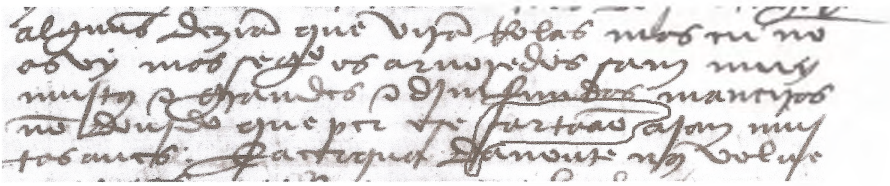 alguũs deziã que virã Rolas mas eu nõ
as vy mas segº os aruoredos sam muy
mujtos e grandes e djmfimdas maneiras
nõ douido que per ese sartaão ajam muj
tas aues. E acerqua da noute nos volue